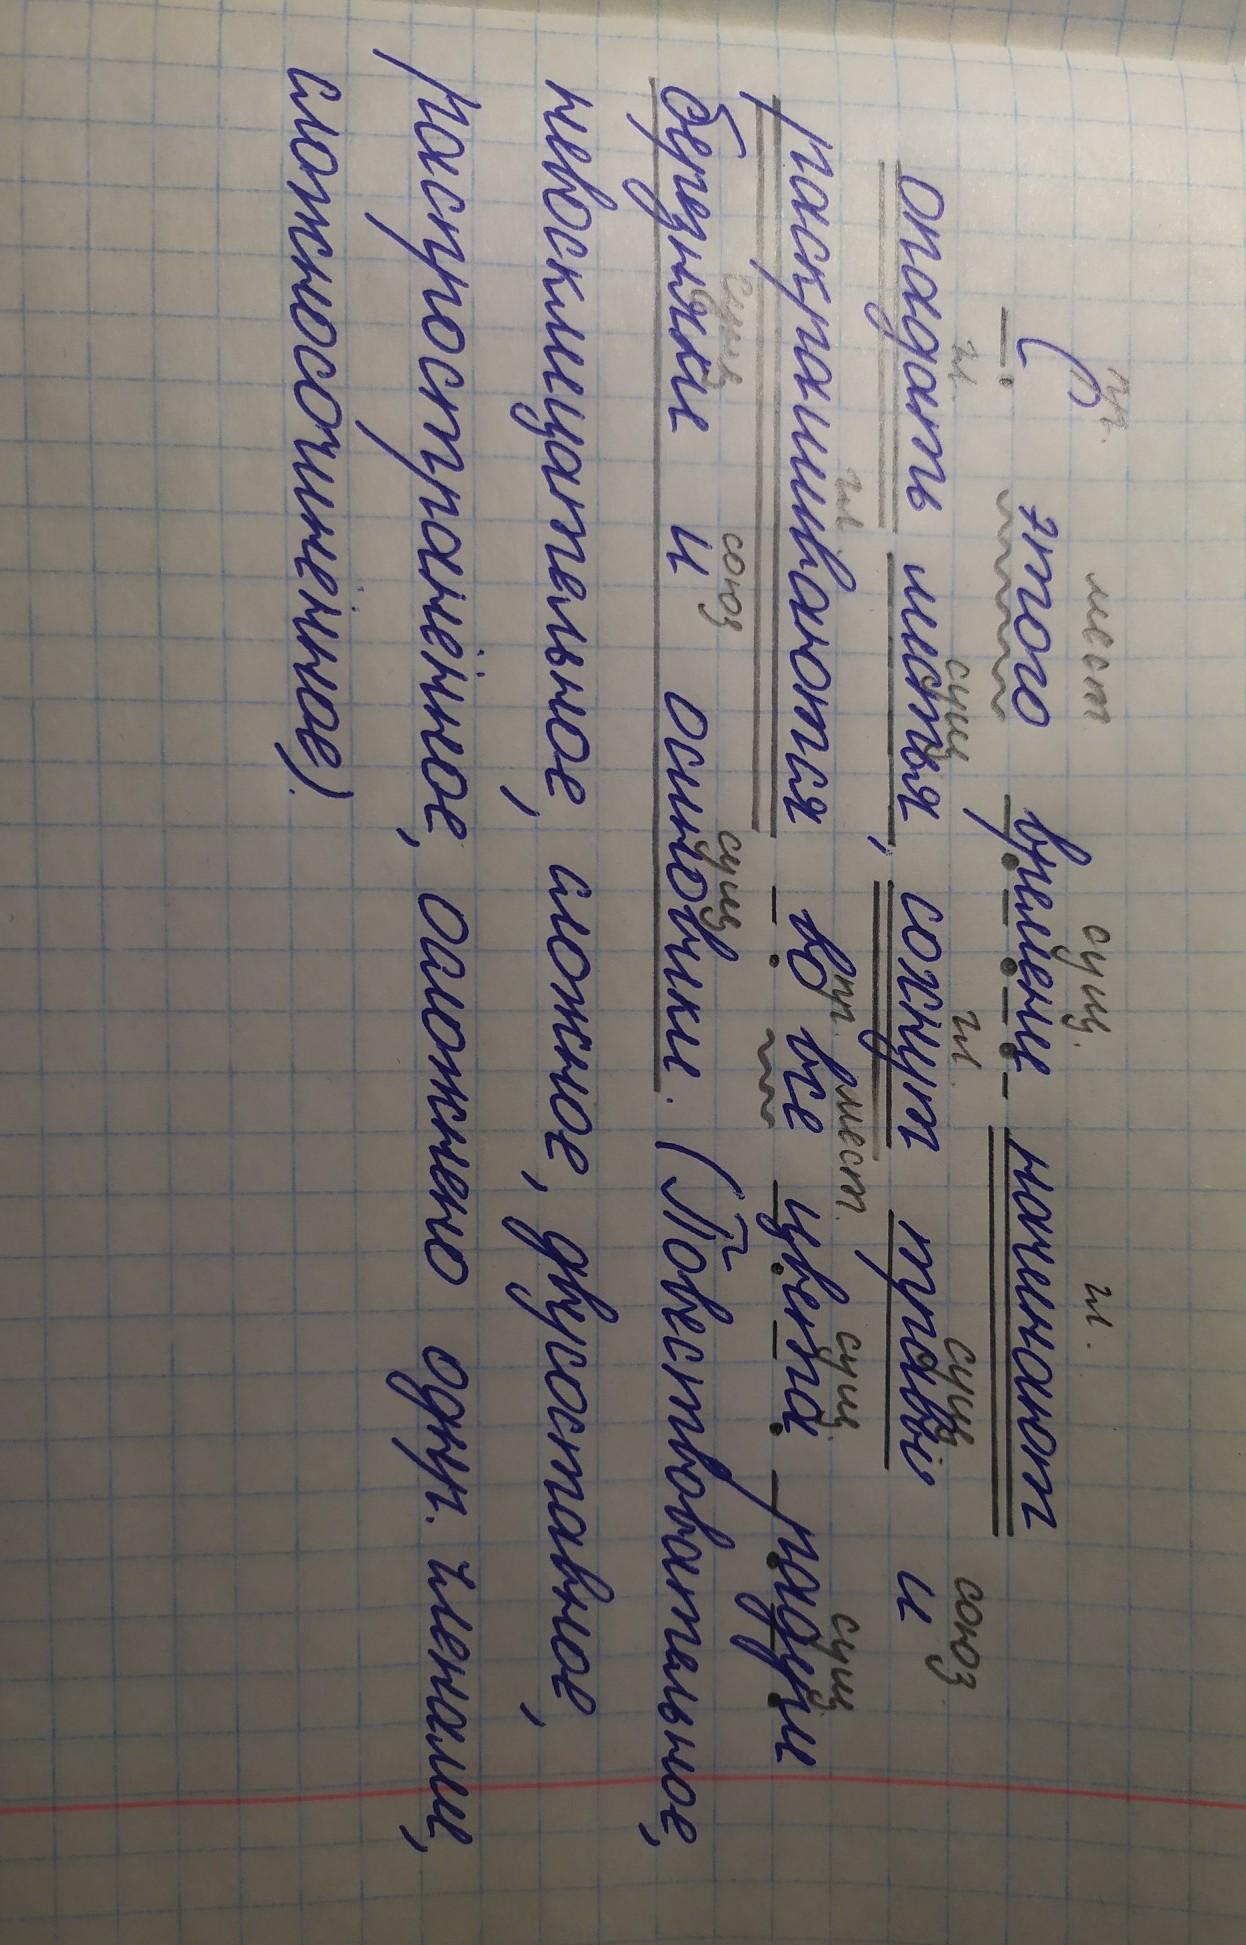 пр. мест сущ. гл.
С этого времени начинают
гл. сущ гл. сущ союз.
опадать листья, сохнут травы и
гл пр. мест. сущ. сущ
раскрашиваются во все цвета радуги
сущ союз сущ
березняки и осинники. (Повествовательное,
невосклицательное, сложное, двусоставное,
распространённое, осложнено одн. членами,
сложносочинённое).